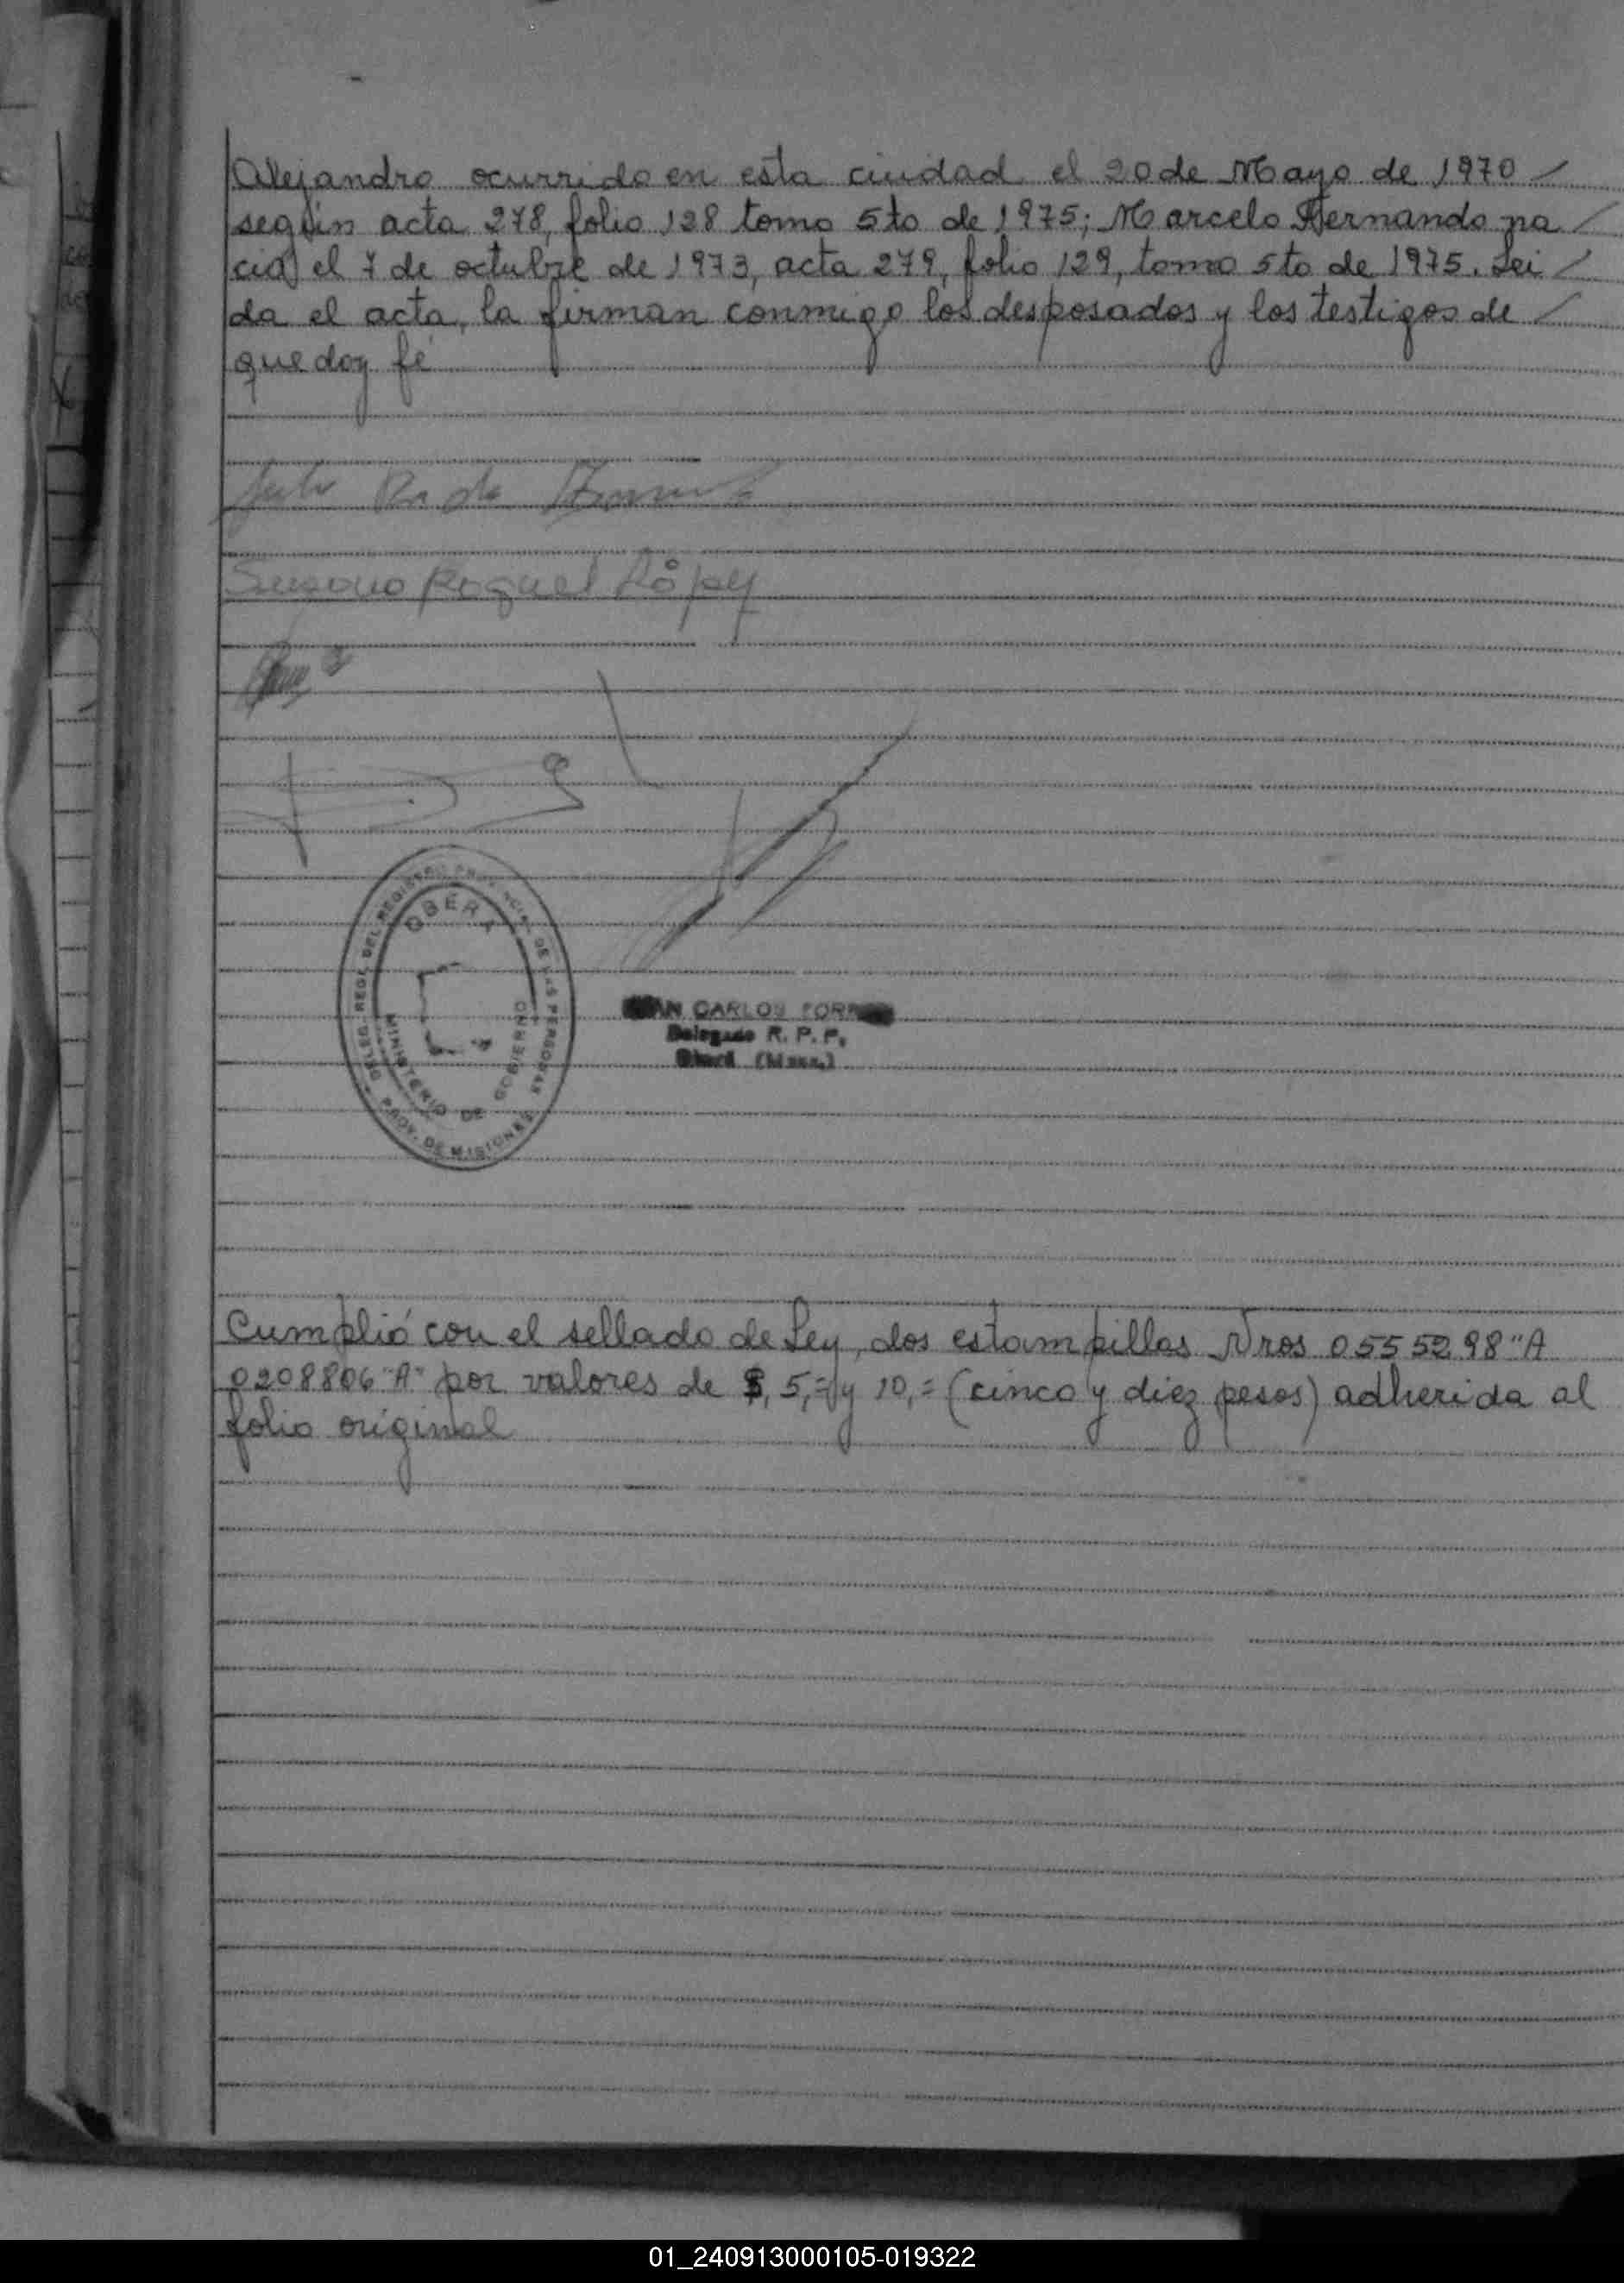 Alejandro ocurrido en esta ciudad el 20 de Mayo de 1970
según acta 278, folio 128 tomo 5to de 1975; Marcelo Hernando na
cio el 7 de octubre de 1973, acta 279, folio 129, tomo 5to de 1975. Lei
da el acta, la firman conmigo los desposados y los testigos de
que doy fé
Susana Raquel López
DELEG. REGL. DEL REGISTRO PROVINCIAL DE LAS PERSONAS
OBERA
MINISTERIO DE GOBIERNO
PROV. DE MISIONES
CARLOS
Delegado R. P. P.
Oberá (Mnes.)
Cumplió con el sellado de Ley, dos estampillas Nros 0555298 "A
0208806 "A" por valores de $, 5,= y 10,= (cinco y diez pesos) adherida al
folio original
01_240913000105-019322